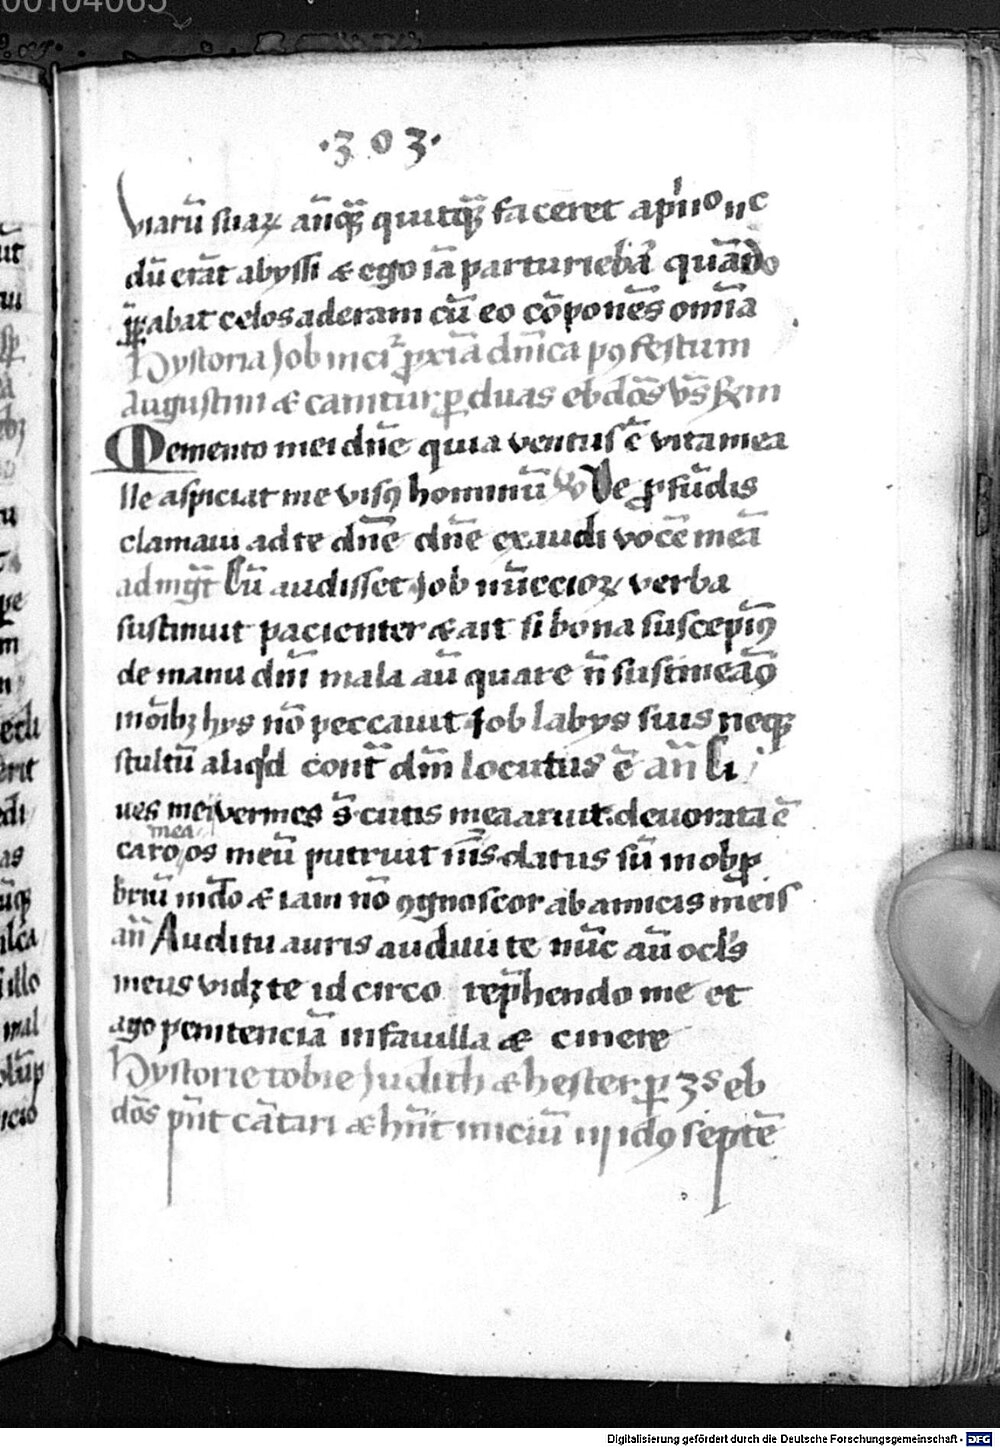 00104065
·303·
viarū suaꝝ anͣqꝫ quitqꝫ faceret apͥnᵒ nc
dū erāt abyssi æ ego iā parturiebāʳ quādo
ꝓꝑabat celos aderam cū eo cōponēs omīa
Hystoria Job incīᵗ ꝓxīa dn̄ica pꝰ festum
Augustini æ canitur ꝑ duas ebdōs
Memento mei dn̄e quia ventus ē vita mea
Ne aspiciat me visꝰ hominū De ꝓfūdis
clamaui ad te dn̄e dn̄e exaudi vocē meā
ad mg̅t Cū audisset Job nūccioꝝ verba
sustinuit pacienter æ ait si bona suscepīꝰ
de manu dn̄i mala aū quare n̄ sustineāꝰ
in oībꝫ hys nō peccauit Job labys suis neqꝫ
stultū aliqͥd cont̄ dm̄ locutus ē an̄ Ci
ues mei vermes s̄ cutis mea aruit deuorata ē
mea
caro os meū putruit nīs datus sū in obꝓ
briū mdō æ iam nō ꝯgnoscor ab amicis meis
an̄ Auditu auris audiui te nūc aū oclūs
meus vidꝫ te id circo rep̄hendo me et
ago penitenciā in fauilla æ cinere
Hystorie tobie Judith æ hester ꝑ 3s eb
dōs pn̄t cātari æ hn̄t iniciū iij idꝰ septē
Digitalisierung gefördert durch die Deutsche Forschungsgemeinschaft - DFG